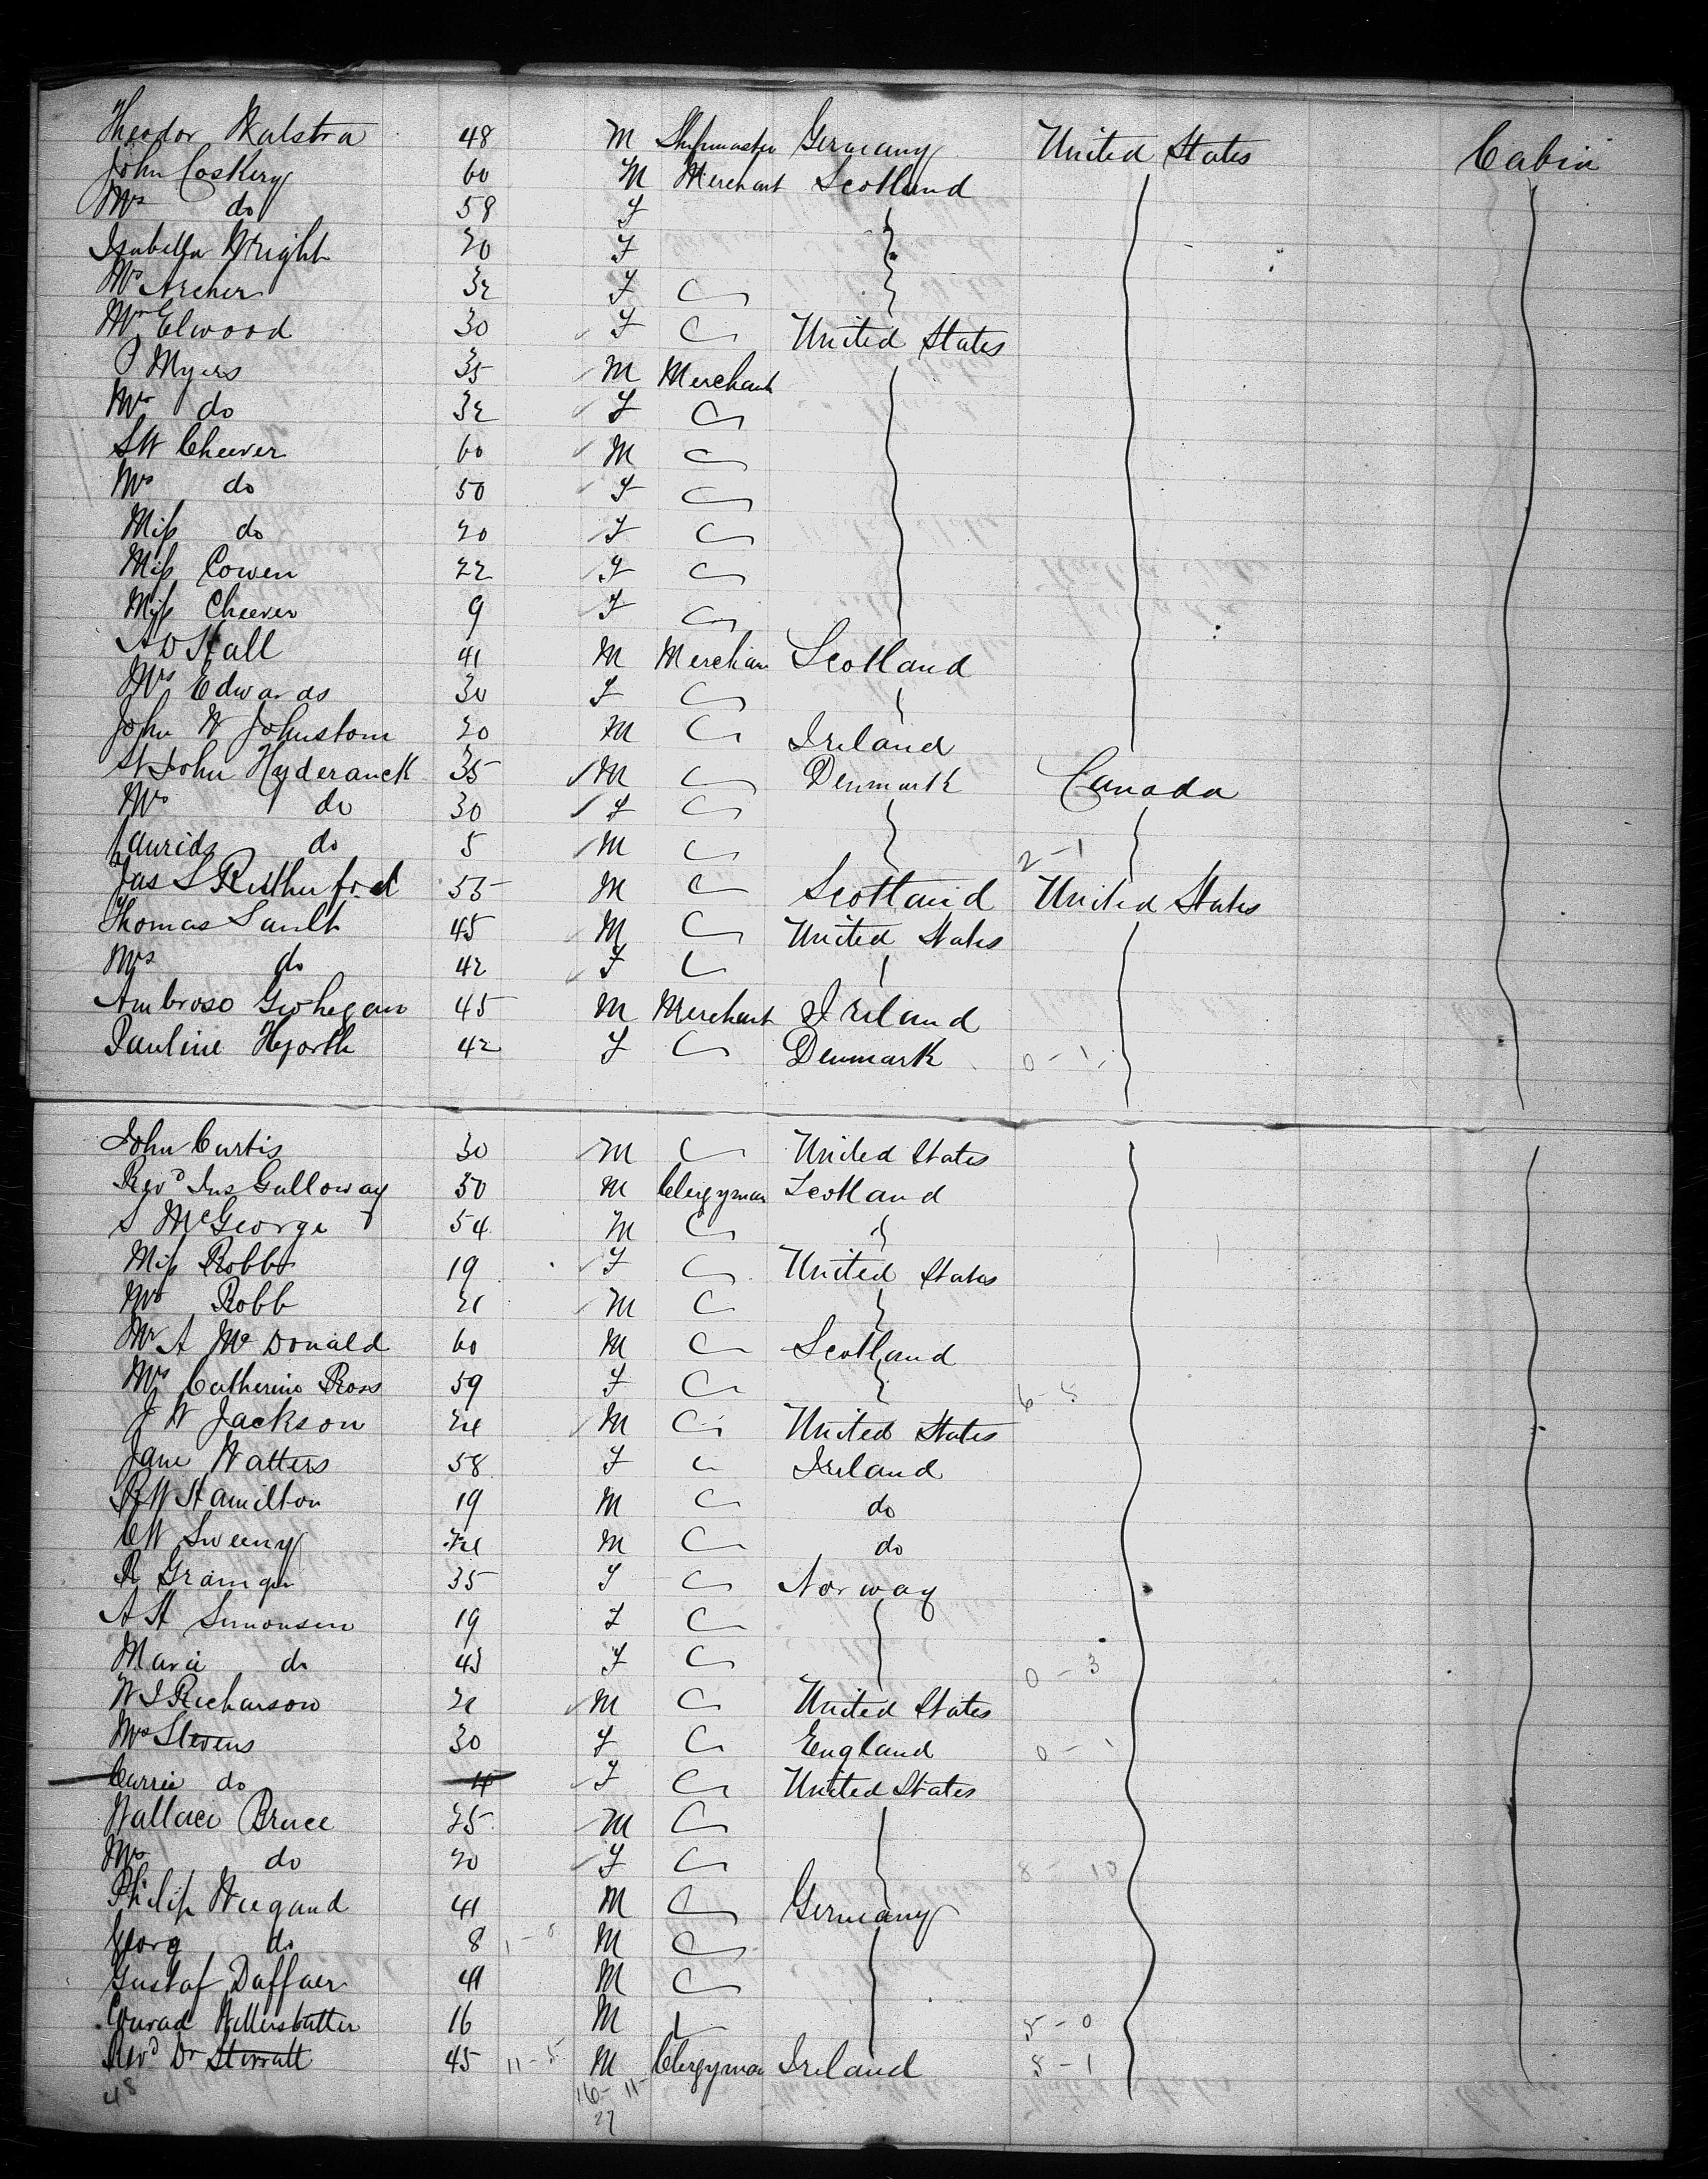 Theodor Walstra 48 M Shipmaster Germany United States Cabin
John Coskery 60 M Merchant Scotland
Mrs do 58 F
Isabella Wright 20 F
Mrs Archer 32 F
Mrs Elwood 30 F United States
P Myers 35 M Merchant
Mrs do 32 F
S W Cheever 60 M
Mrs do 50 F
Miss do 20 F
Miss Cowen 22 F
Miss Cheever 9 F
A D Hall 41 M Merchan Scotland
Mrs Edwards 30 F
John W Johnstone 20 M Ireland
St John Hyderanck 35 M Denmark Canada
Mrs do 30 F
Laurids do 5 M 2-1
Jas S Rutherford 55 M Scotland United States
Thomas Sault 45 M United States
Mrs do 42 F
Ambrose Geohegan 45 M Merchant Ireland
Pauline Hjorth 42 F Denmark 0-1
John Curtis 30 M United States
Revd Jns Galloway 50 M Clergyman Scotland
S McGeorge 54 M
Miss Robb 19 F United States
Mr Robb 21 M
Mr A Mc Donald 60 M Scotland
Mrs Catherine Ross 59 F 6-5
J W Jackson 24 M United States
Jane Watters 58 F Ireland
R W Hamilton 19 M do
C W Sweeny M do
R 35 F Norway
A H Simonsen 19 F
Marie do 43 F 0-3
W I Richarson 21 M United States
Mrs Stevens 30 F England 0-1
Carrie do 4 F United States
Wallace Bruce 25 M
Mrs do 20 F 8-10
Philip Wiegand 41 M Germany
Georg do 8 M
Gustaf Daffaer 41 M
Conrad Willersbatter 16 M 5-0
Revd Dr Sterratt 45 11-5 M Clergyman Ireland 8-1
48 16- 11-
27